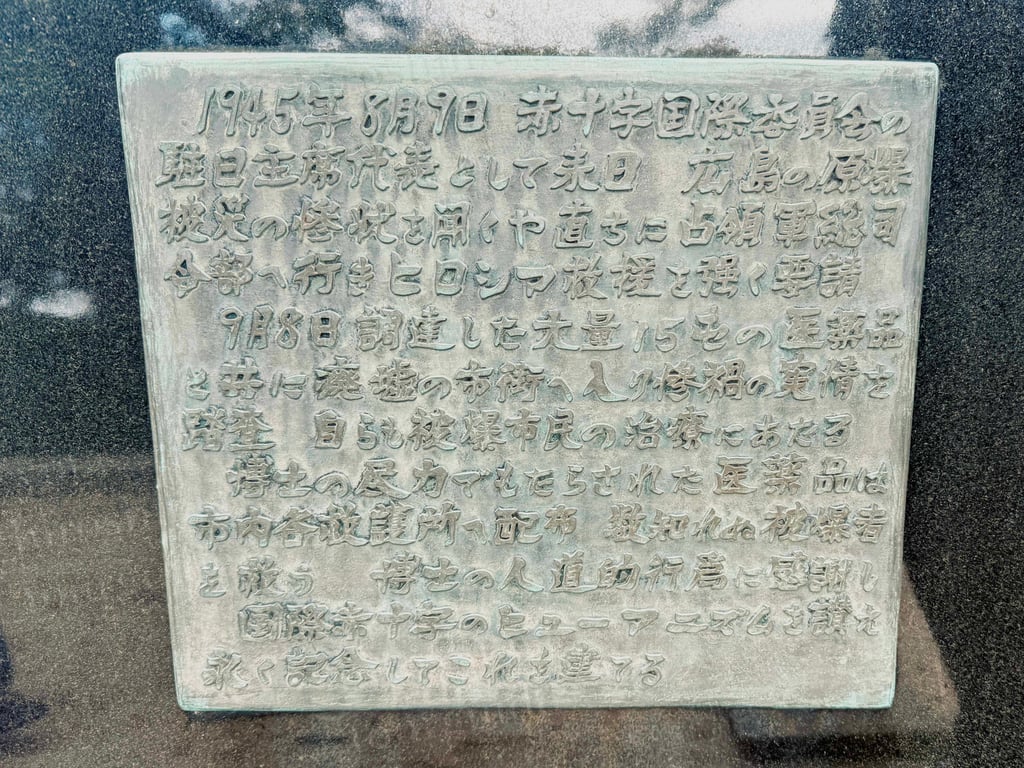 1945年8月9日 赤十字国際委員会の
駐日主席代表として来日 広島の原爆
被災の惨状を聞くや直ちに占領軍総司
令部へ行きヒロシマ救援を強く要請
9月8日調達した大量15屯の医薬品
と共に廃墟の市街へ入り惨禍の実情を
踏査 自らも被爆市民の治療にあたる
博士の尽力でもたらされた医薬品は
市内各救護所へ配布 数知れぬ被爆者
を救う 博士の人道的行為に感謝し
国際赤十字のヒューマニズムを讃え
永く記念してこれを建てる